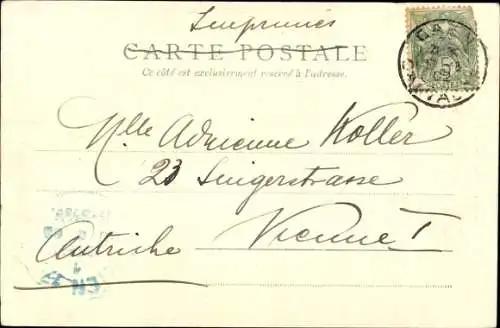 Imprimés
CARTE POSTALE
Ce côté est exclusivement réservé à l'adresse.
CAEN
5
Mlle Adrienne Koller
23 Singerstrasse
Vienne I
Autriche